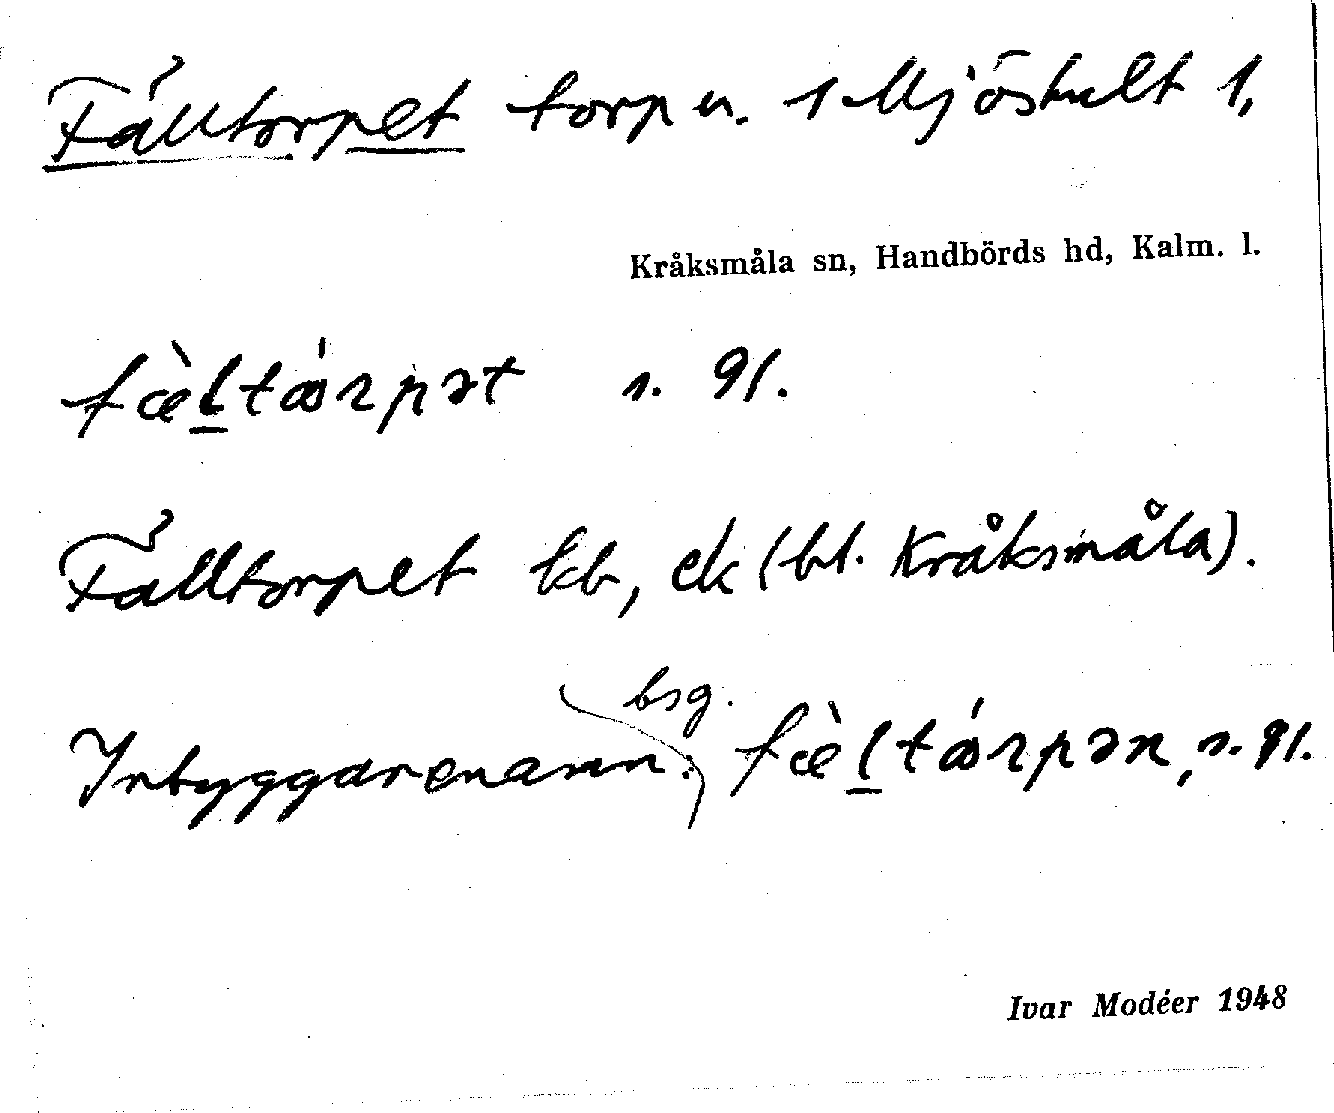 Fälltorpet torp u. 1 Mjöshult 1,
Kråksmåla sn, Handbörds hd, Kalm. l.
fæ̀ltɷ́rpət s. 91.
Fälltorpet kb, ek (bl. Kråksmåla).
bsg.
Inbyggarenamn: fæ̀ltɷ́rpən, s. 91.
Ivar Modéer 1948